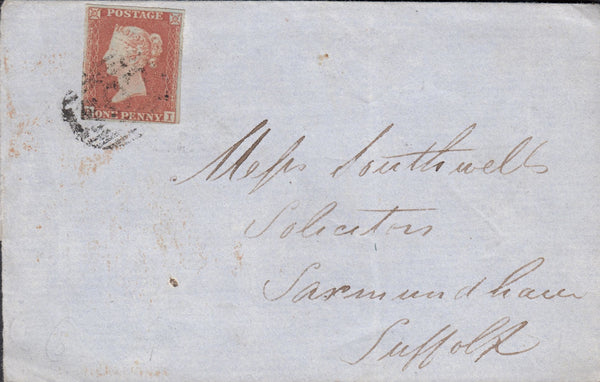 POSTAGE
ONE PENNY
I
Mess Southwells
Solicitors
Saxmundham
Suffolk